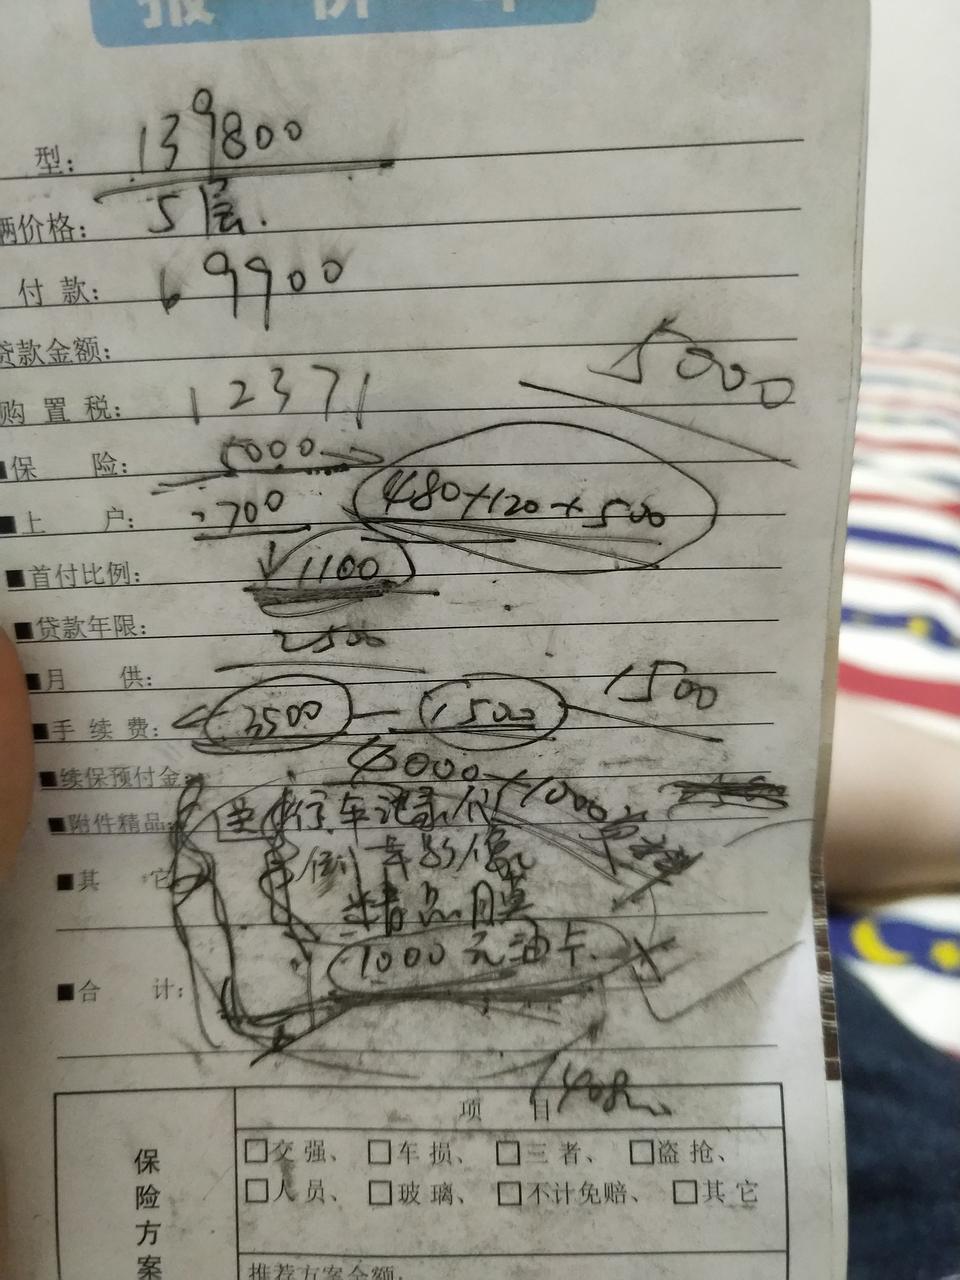 报 价 单
型: 139800
辆价格: 5层.
付 款: 69900
贷款金额:
5000
购 置 税: 12371
保 险: 5000
480+120+500
上 户: 2700
首付比例: 1100
贷款年限: 2500
月 供:
手 续 费: 3500 — 1500 1500
续保预付金: 4000 +1000
附件精品: 行车记录仪
倒车影像
其 它
精品膜
1000元油卡
合 计:
项 目
保险方案
□交 强、 □车 损、 □三 者、 □盗 抢、
□人 员、 □玻 璃、 □不计免赔、 □其 它
推荐方案金额: